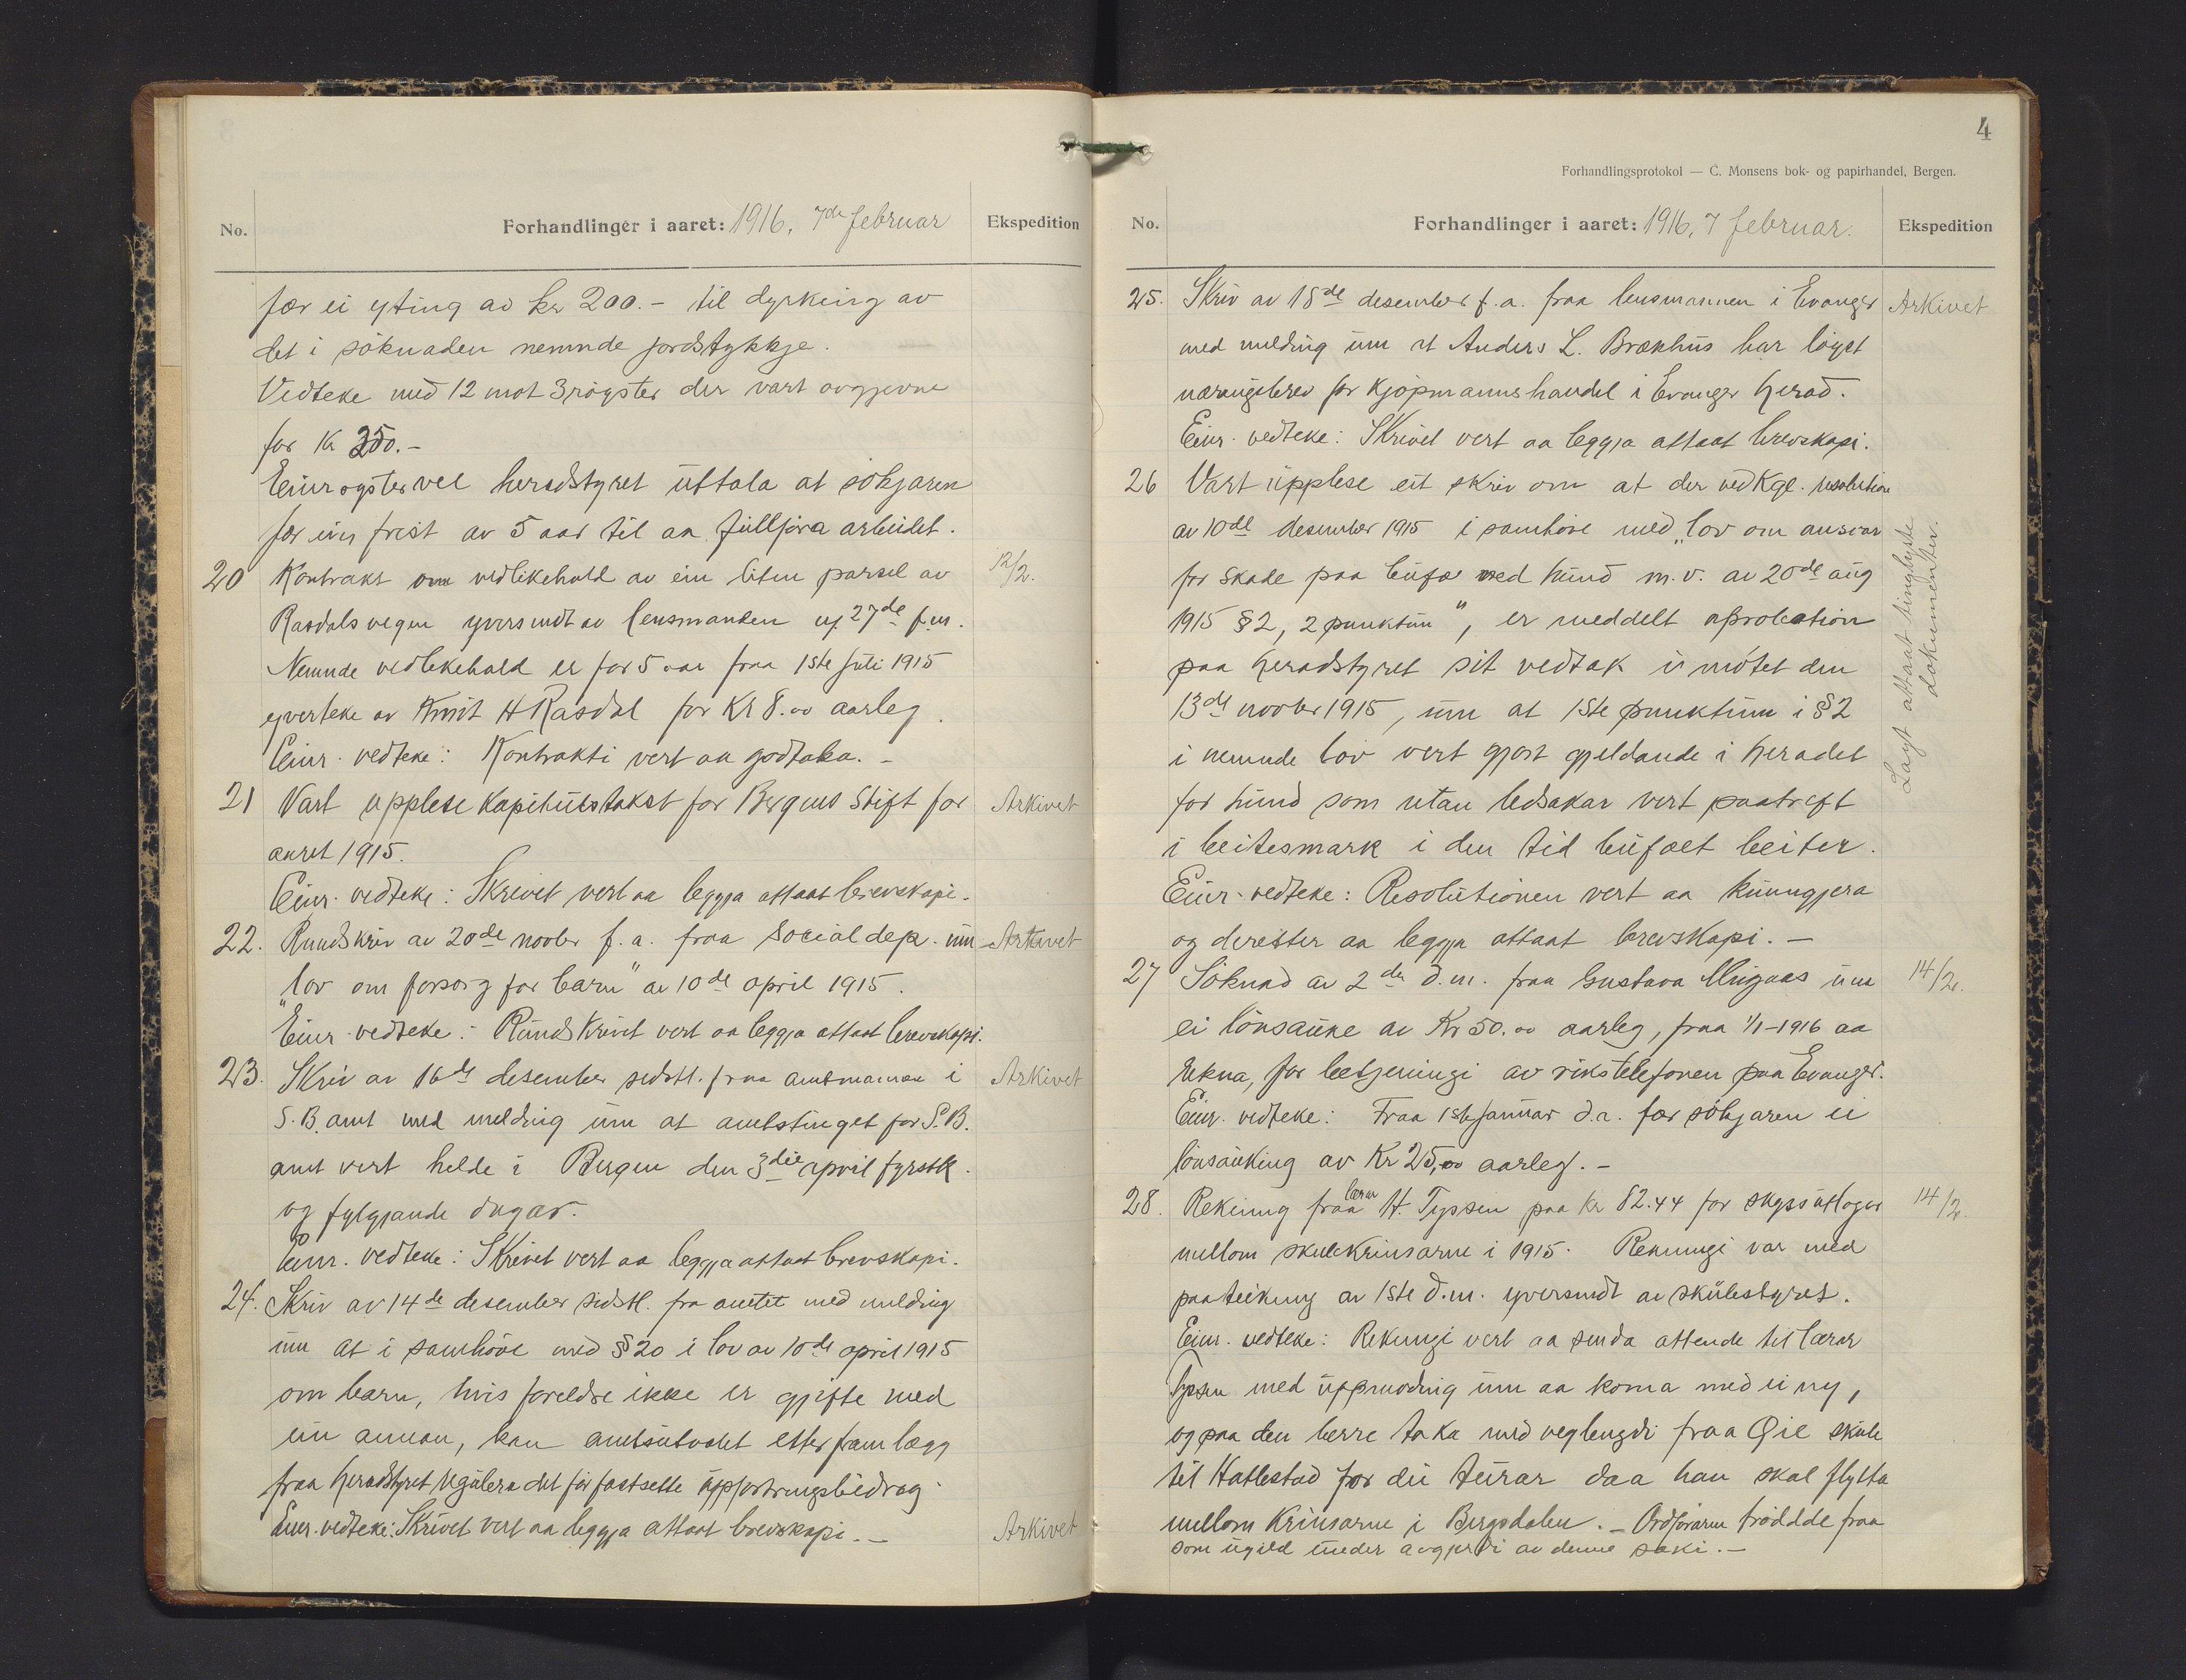 No.
Forhandlinger i aaret: 1916, 7de februar
Ekspedition
fær ei yting av kr 200.- til dyrking av
det i söknaden nemnde jordstykkje.
Vedteke med 12 mot 3 röyster der vart avgjevne
for Kr 350.-
Einröystes vel heradstyret uttala at sökjaren
fær ein frist av 5 aar til aa fullföra arbeidet.
20 Kontrakt om vedlikehald av ein liten parsel av 12/2.
Rasdalsvegen yversendt av lensmanden 27de f.m.
Nemnde vedlikehald er for 5 aar fraa 1ste juli 1915
yverteke av Knut H Rasdal for Kr 8.00 aarleg.
Einr. vedteke: Kontrakti vert aa godtaka. -
21 Vart upplese Kapitulstakst for Bergens Stift for Arkivet
aaret 1915.
Einr. vedteke: Skrivet vert aa leggja attaat brevskapi.
22. Rundskriv av 20de novbr f.a. fraa Socialdep. um Arkivet
"lov om forsorg for barn" av 10de april 1915.
Einr. vedteke: Rundskrivet vert aa leggja attaat brevskapi.
23. Skriv av 16de desember sidstl. fraa amtmannen i Arkivet
S. B. amt med melding um at amtstinget for S. B.
amt vert helde i Bergen den 3die april fyrstk.
og fylgjande dagar.
Einr. vedteke: Skrivet vert aa leggja attaat brevskapi.
24. Skriv av 14de desember sidstl. fra amtet med melding
um at i samhöve med § 20 i lov av 10de april 1915
om barn, hvis foreldre ikke er gjifte med
ein annan, kan amtsutvalet etter framlegg
fraa heradstyret regulera det för fastsette uppfostringsbidrag.
Einr. vedteke: Skrivet vert aa leggja attaat brevskapi. - Arkivet
4
Forhandlingsprotokol — C. Monsens bok- og papirhandel, Bergen.
No.
Forhandlinger i aaret: 1916, 7 februar.
Ekspedition
25. Skriv av 18de desember f.a. fraa lensmannen i Evanger Arkivet
med melding um at Anders L. Brækhus har löyst
næringsbrev for Kjöpmannshandel i Evanger herad.
Einr. vedteke: Skrivet vert aa leggja attaat brevskapi.
26 Vart upplese eit skriv om at der ved Kgl. resolution
av 10de desember 1915 i samhöve med "lov om ansvar
for skade paa bufæ ved hund m.v. av 20de aug
1915 § 2, 2 punktum", er meddelt aprobation
paa heradstyret sit vedtak i mötet den
13de novbr 1915, um at 1ste punktum i § 2
i nemnde lov vert gjort gjeldande i heradet
for hund som utan ledsakar vert paatreft
i beitesmark i den tid bufæet beiter.
Einr. vedteke: Resolutionen vert aa kunngjera
og derefter aa leggja attaat brevskapi. -
Lagt attaat tinglyste
dokumenter.
27 Söknad av 2den d.m. fraa Gustava Mugaas um 14/2.
ei lönsauke av Kr 50.00 aarleg, fraa 1/1-1916 aa
rekna, for betjeningi av rikstelefonen paa Evanger.
Einr. vedteke: Fraa 1ste Januar d.a. fær sökjaren ei
lönsauking av Kr 25,00 aarleg. -
28. Rekning fraa lærar H. Tyssen paa Kr 82.44 for skyssutlogur 14/2.
mellom skulekrinsarne i 1915. Rekningi var med
paateikning av 1ste d.m. yversendt av skulestyret.
Einr. vedteke: Rekningi vert aa senda attende til lærar
Tyssen med uppmoding um aa koma med ei ny,
og paa den berre taka med veglengdi fraa Gie skule
til Hatlestad for dei turar daa han skal flytta
mellom krinsarne i Bergsdalen. - Ordföraren trøddde fraa
som ugild under avgjerdi av denne saki. -